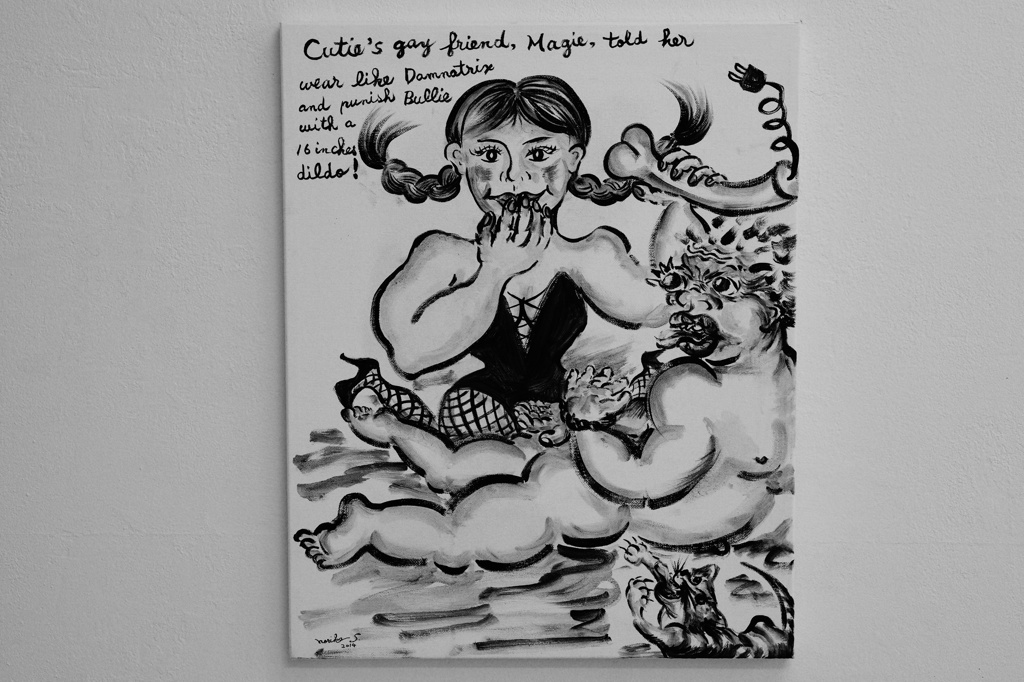 Cutie's gay friend, Magie, told her
wear like Damnatrix
and punish Bullie
with a
16 inches
dildo!
Noriko S.
2014